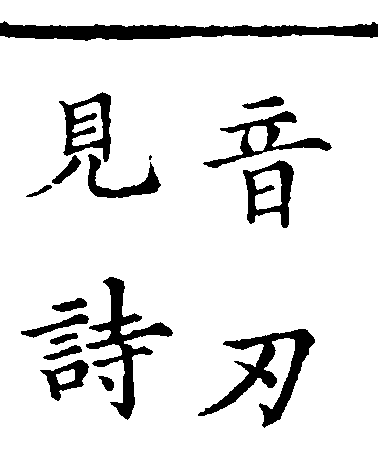 音刃
見詩